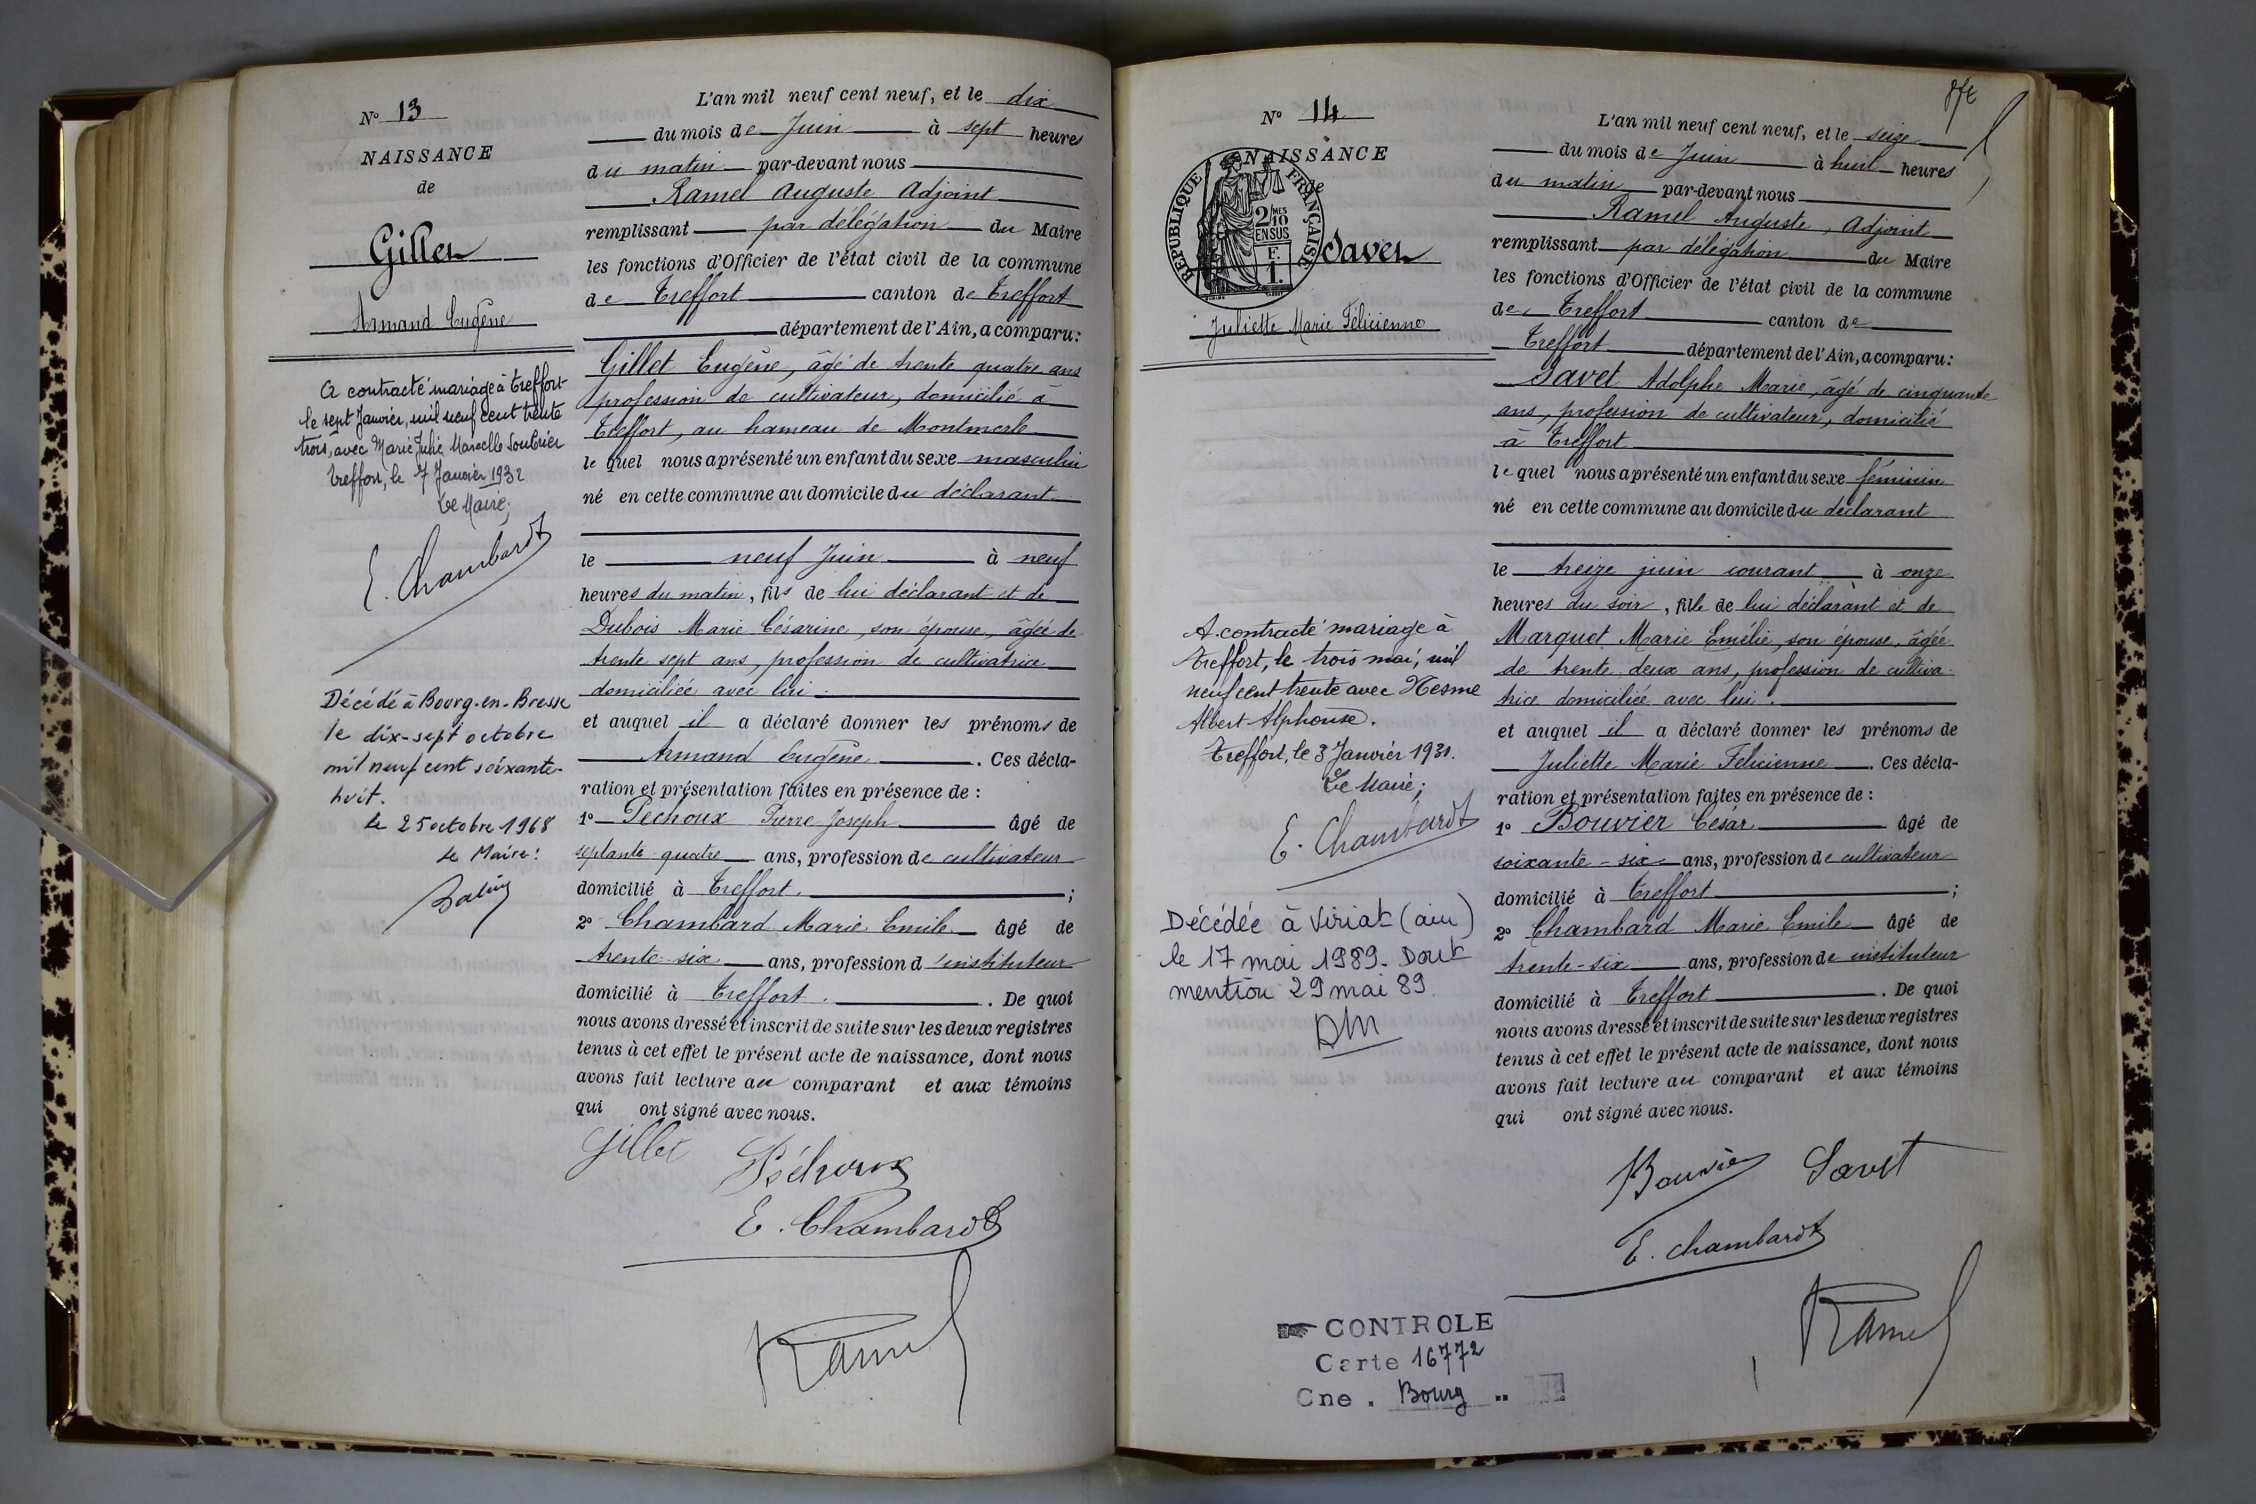 N° 13
NAISSANCE
de
Gillet
Armand Eugène
A contracté mariage à Treffort
le sept Janvier, mil neuf cent trente
trois, avec Marie Julie Marcelle
Treffort, le 7 Janvier 193
Le Maire,
E. Chambard
Décédé à Bourg-en-Bresse
le dix-sept octobre
mil neuf cent soixante-
huit.
Le 25 octobre 1968
Le Maire:
L'an mil neuf cent neuf, et le dix
du mois de Juin à sept heures
du matin par-devant nous
Ramel Auguste Adjoint
remplissant par délégation du Maire
les fonctions d'Officier de l'état civil de la commune
de Treffort canton de Treffort
département de l'Ain, a comparu:
Gillet Eugène, âgé de trente quatre ans
profession de cultivateur, domicilié à
Treffort, au hameau de Montmerle
le quel nous a présenté un enfant du sexe masculin
né en cette commune au domicile du déclarant
le neuf Juin à neuf
heures du matin, fils de lui déclarant et de
Dubois Marie Césarine, son épouse, âgée de
trente sept ans, profession de cultivatrice
domiciliée avec lui.
et auquel il a déclaré donner les prénoms de
Armand Eugène. Ces décla-
ration et présentation faites en présence de :
1° Pechoux Pierre Joseph âgé de
septante quatre ans, profession de cultivateur
domicilié à Treffort. ;
2° Chambard Marie Emile âgé de
trente-six ans, profession d'instituteur
domicilié à Treffort. . De quoi
nous avons dressé et inscrit de suite sur les deux registres
tenus à cet effet le présent acte de naissance, dont nous
avons fait lecture au comparant et aux témoins
qui ont signé avec nous.
Gillet Péchoux
E. Chambard
Ramel
N° 14
NAISSANCE
de
REPUBLIQUE FRANÇAISE
2/10MES
EN SUS
F.
1.
Savet
Juliette Marie Félicienne
A contracté mariage à
Treffort, le trois mai, mil
neuf cent trente avec Hesme
Albert Alphonse.
Treffort, le 3 Janvier 1931.
Le Maire;
E. Chambard
Décédée à Viriat (ain)
le 17 mai 1989. Dont
mention 29 mai 89
CONTROLE
Carte 16772
Cne. Bourg
L'an mil neuf cent neuf, et le seize
du mois de Juin à huit heures
du matin par-devant nous
Ramel Auguste, Adjoint
remplissant par délégation du Maire
les fonctions d'Officier de l'état civil de la commune
de Treffort canton de
Treffort département de l'Ain, a comparu:
Savet Adolphe Marie, âgé de cinquante
ans, profession de cultivateur, domicilié
à Treffort
le quel nous a présenté un enfant du sexe féminin
né en cette commune au domicile du déclarant
le treize juin courant à onze
heures du soir, fille de lui déclarant et de
Marquet Marie Emélie, son épouse, âgée
de trente deux ans, profession de cultiva-
trice domiciliée avec lui.
et auquel il a déclaré donner les prénoms de
Juliette Marie Félicienne. Ces décla-
ration et présentation faites en présence de :
1° Bouvier César âgé de
soixante-six ans, profession de cultivateur
domicilié à Treffort ;
2° Chambard Marie Emile âgé de
trente-six ans, profession de instituteur
domicilié à Treffort . De quoi
nous avons dressé et inscrit de suite sur les deux registres
tenus à cet effet le présent acte de naissance, dont nous
avons fait lecture au comparant et aux témoins
qui ont signé avec nous.
Bouvier Savet
E. Chambard
Ramel